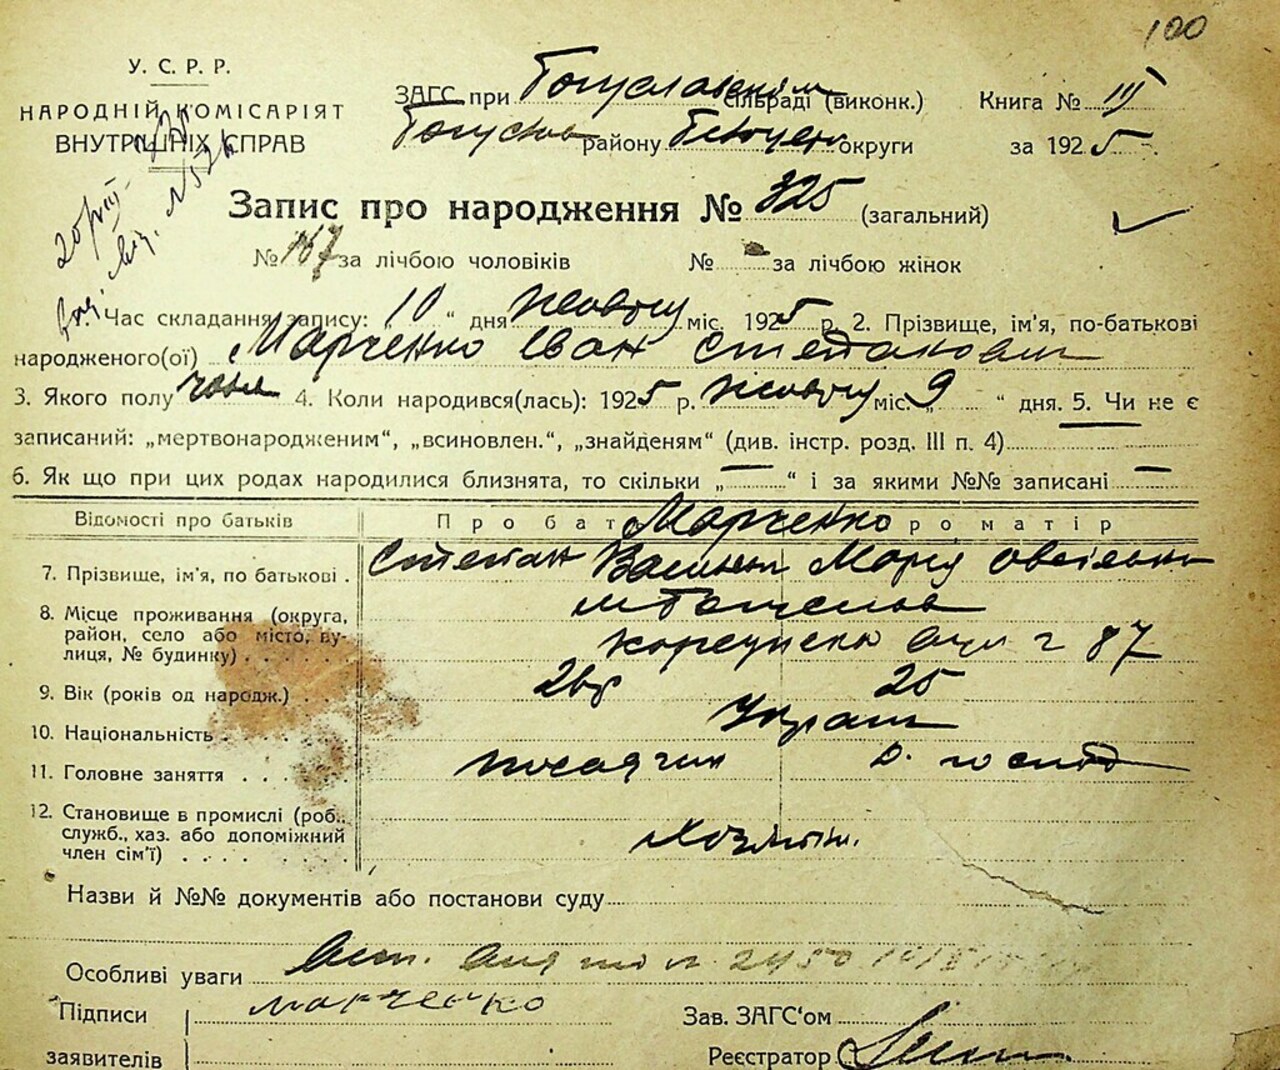 100
У. С. Р. Р.
НАРОДНІЙ КОМІСАРІЯТ
ВНУТРІШНІХ СПРАВ
ЗАГС при Богуславськім сільраді (виконк.) Книга № III
Богуслав району округи за 1925
Запис про народження № 325 (загальний)
№ 167 за лічбою чоловіків № за лічбою жінок
1. Час складання запису: „10“ дня Жовтня міс. 1925 р. 2. Прізвище, ім'я, по-батькові
народженого(ої) Марченко Іван Степанович
3. Якого полу чол 4. Коли народився(лась): 1925 р. Жовтня міс. „9“ дня. 5. Чи не є
записаний: „мертвонародженим“, „всиновлен.“, „знайденям“ (див. інстр. розд. III п. 4)
6. Як що при цих родах народилися близнята, то скільки „—“ і за якими №№ записані —
Відомості про батьків Про бат Марченко ро матір
7. Прізвище, ім'я, по батькові . Степан Васильов Марія
8. Місце проживання (округа,
район, село або місто, ву-
лиця, № будинку) . . . . . 87
9. Вік (років од народж.) . 26 25
10. Національність . Україн
11. Головне заняття . . . . д. господ
12. Становище в промислі (роб.,
служб., хаз. або допоміжний
член сім'ї) . . . . Хозяїн.
Назви й №№ документів або постанови суду
Особливі уваги 2450
Підписи Марченко Зав. ЗАГС'ом
заявителів Реєстратор